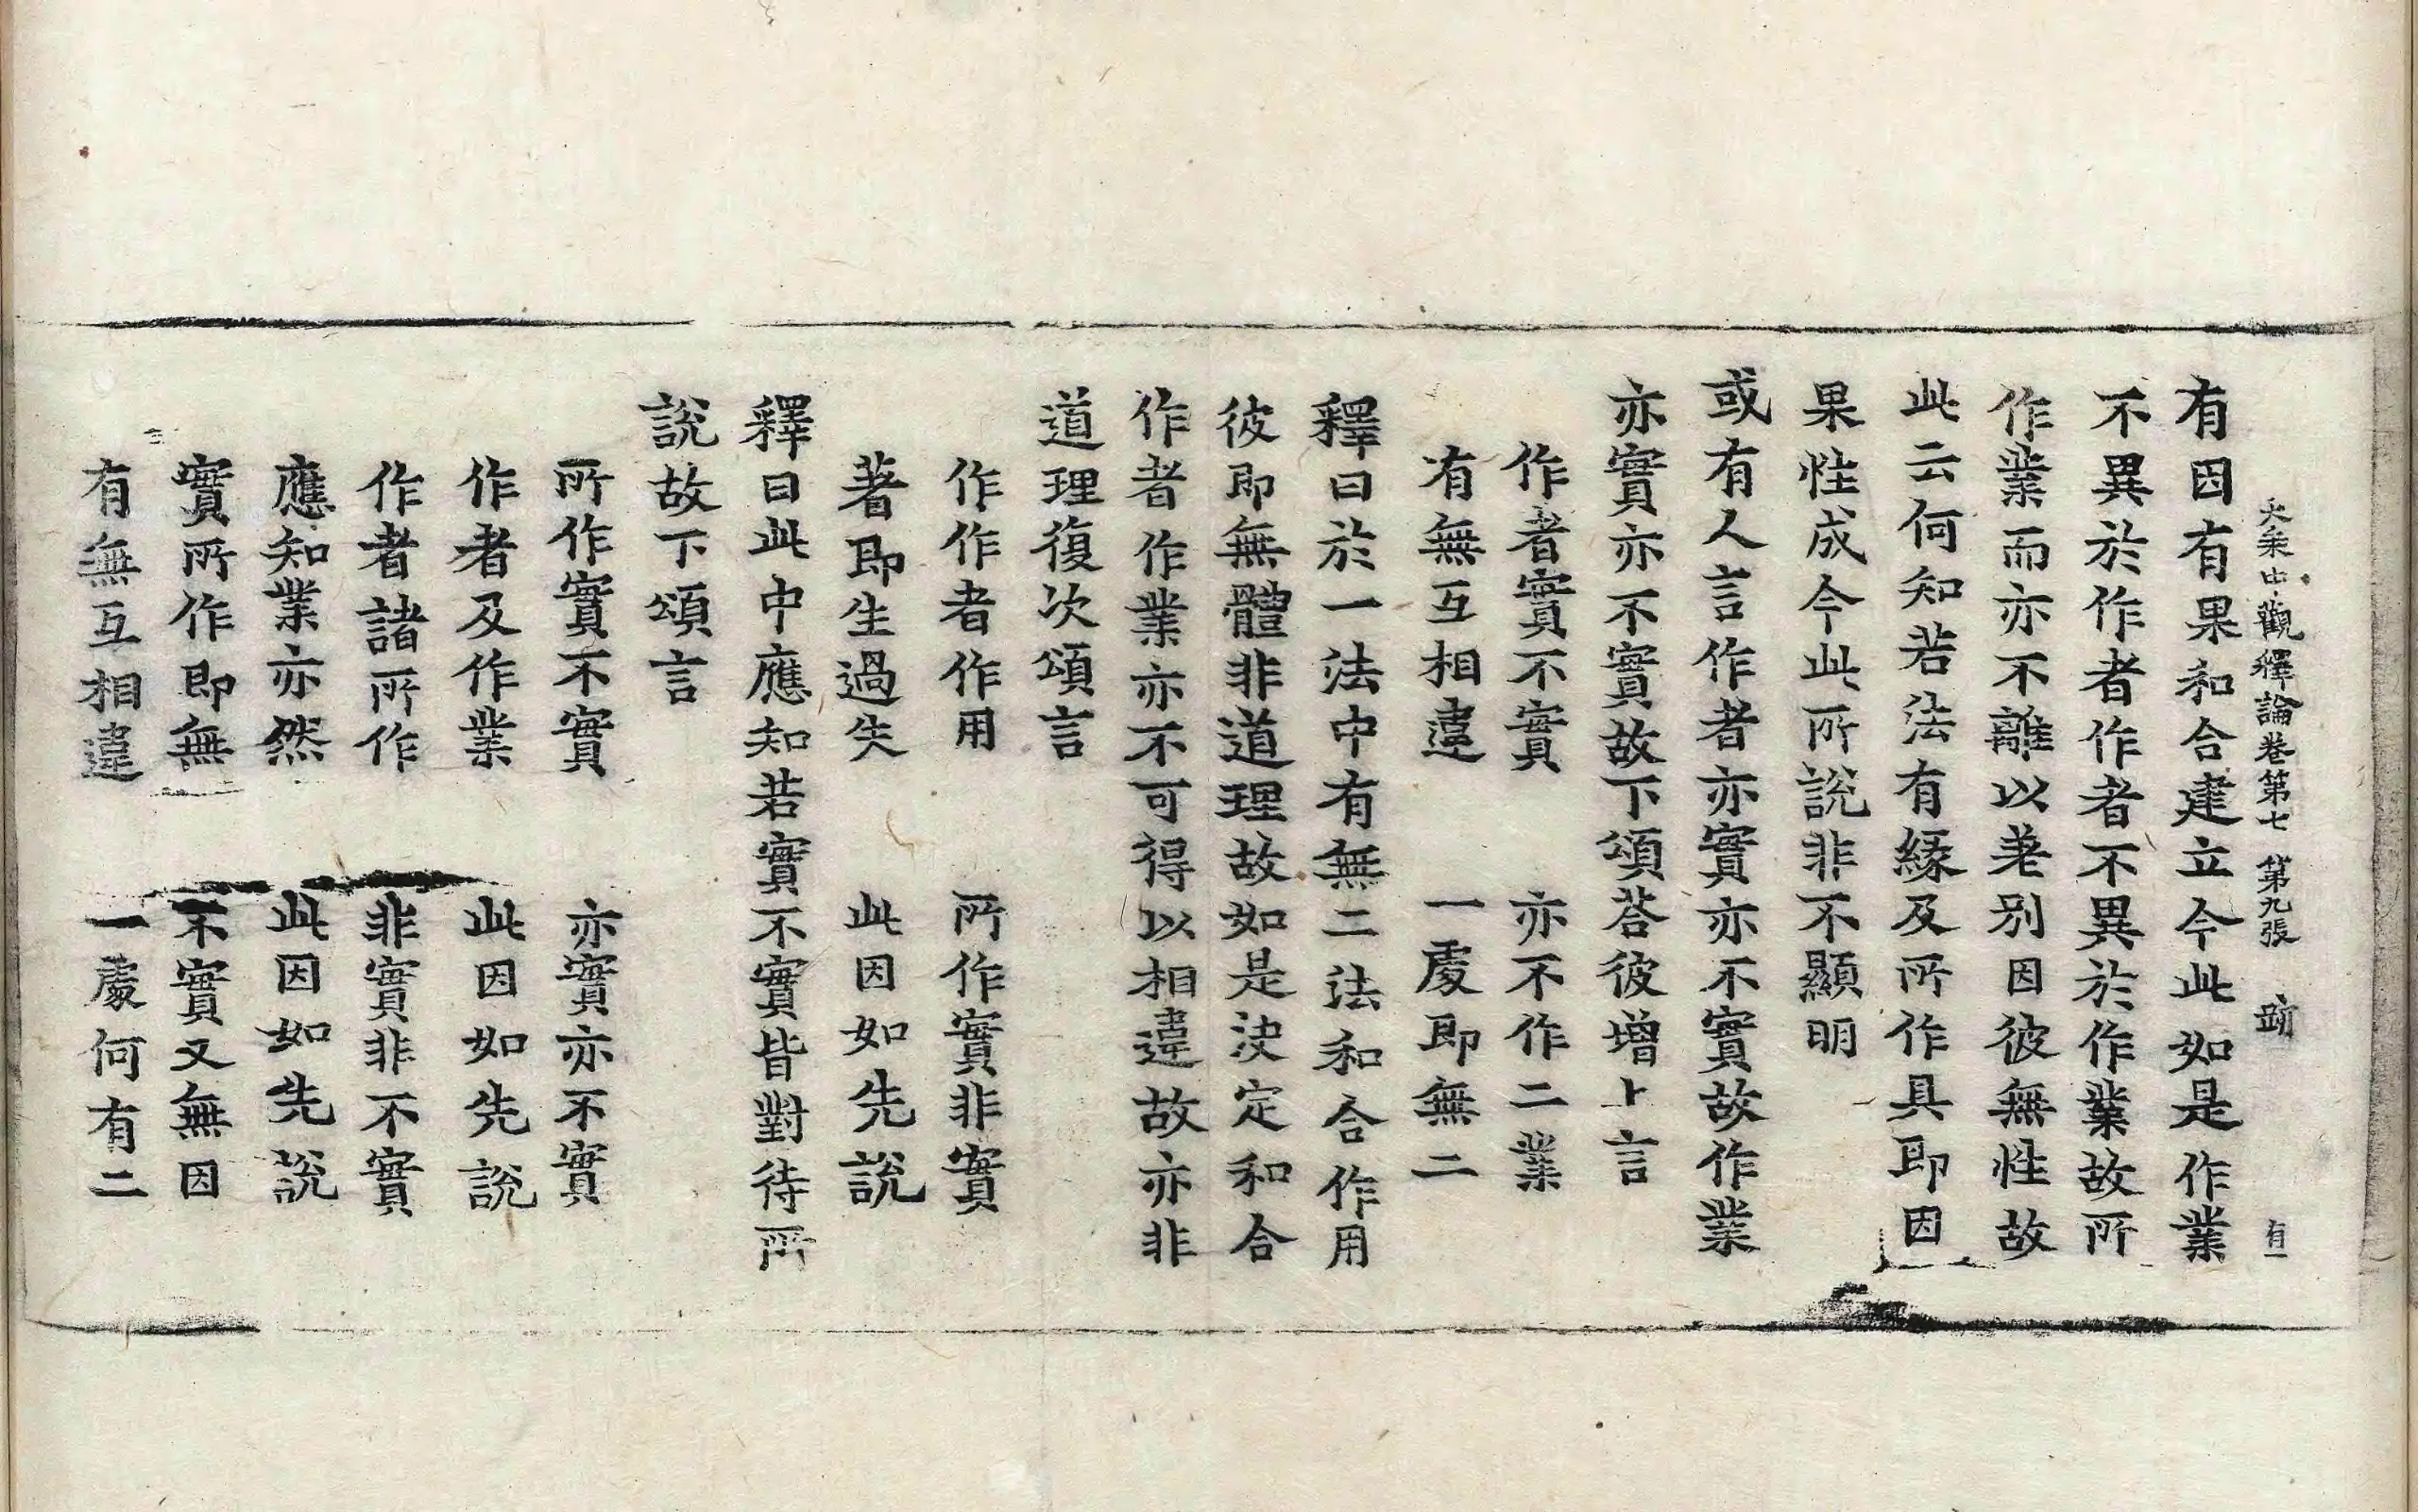 大乗中觀釋論卷第七 第九張 有一
有因有果和合建立今此如是作業
不異於作者作者不異於作業故所
作業而亦不離以差別因彼無性故
此云何知若法有緣及所作具即因
果性成今此所說非不顯明
或有人言作者亦實亦不實故作業
亦實亦不實故下頌荅彼增上言
作者實不實 亦不作二業
有無互相違 一處即無二
釋曰於一法中有無二法和合作用
彼即無體非道理故如是決定和合
作者作業亦不可得以相違故亦非
道理復次頌言
作作者作用 所作實非實
著即生過失 此因如先說
釋曰此中應知若實不實皆對待所
說故下頌言
所作實不實 亦實亦不實
作者及作業 此因如先說
作者諸所作 非實非不實
應知業亦然 此因如先說
實所作即無 不實又無因
有無互相違 一處何有二